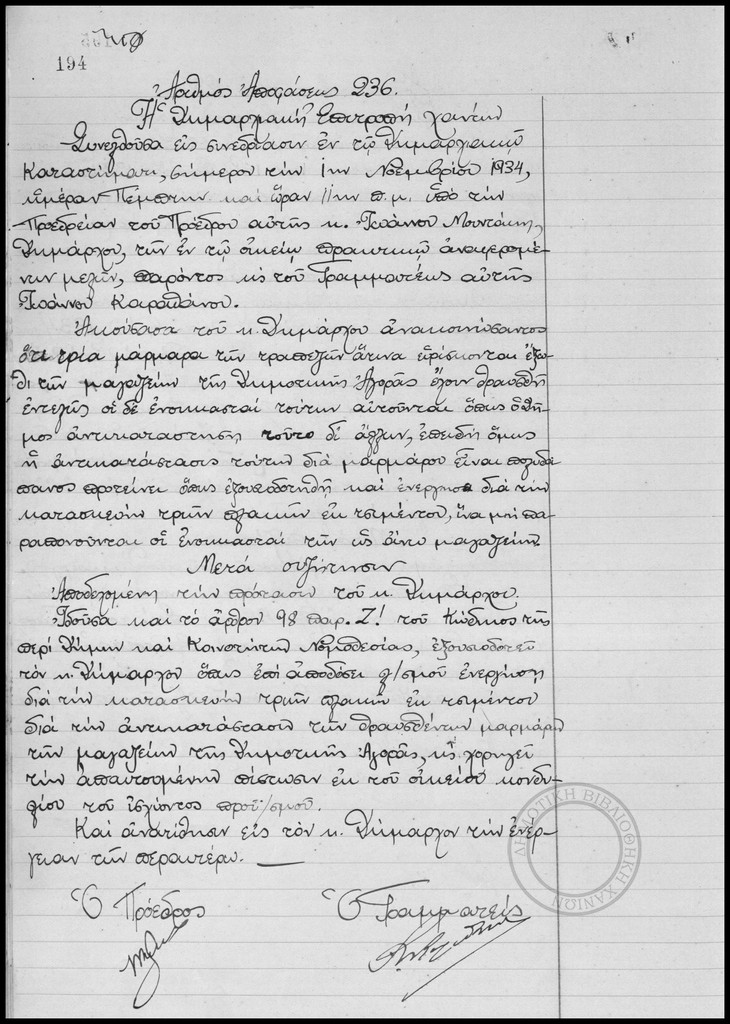 194
Ἀριθμός Ἀποφάσεως 236.
Ἡ Δημαρχιακή Ἐπιτροπή Χανίων
Συνελθοῦσα εἰς συνεδρίασιν ἐν τῷ Δημαρχιακῷ
Καταστήματι, σήμερον τήν 1ην Νοεμβρίου 1934,
ἡμέραν Πέμπτην καί ὥραν 11ην π.μ. ὑπό τήν
Προεδρείαν τοῦ Προέδρου αὐτῆς κ. Ἰωάννου Μουντάκη,
Δημάρχου, τῶν ἐν τῷ οἰκείῳ πρακτικῷ ἀναφερομέ-
νων μελῶν, παρόντος κ τοῦ Γραμματέως αὐτῆς
Ἰωάννου Καραπάνου.
Ἀκούσασα τοῦ κ. Δημάρχου ἀνακοινώσαντος
ὅτι τρία μάρμαρα τῶν τραπεζῶν ἅτινα εὑρίσκονται ἔξω-
θι τῶν μαγαζείων τῆς Δημοτικῆς Ἀγορᾶς ἔχουν θραυσθῆ
ἐντελῶς οἱ δέ ἐνοικιασταί τούτων αἰτοῦνται ὅπως ὁ Δῆ-
μος ἀντικαταστήσῃ τοῦτο δι' ἄλλων, ἐπειδή ὅμως
ἡ ἀντικατάστασις τούτων διά μαρμάρου εἶναι πολυδά
πανος προτείνει ὅπως ἐξουσιοδοτηθῇ καί ἐνεργήσῃ διά τήν
κατασκευήν τριῶν πλακῶν ἐκ τσιμέντου, ἵνα μή πα-
ραπονοῦνται οἱ ἐνοικιασταί τῶν ὡς ἄνω μαγαζείων.
Μετά συζήτησιν
Ἀποδεχομένη τήν πρότασιν τοῦ κ. Δημάρχου.
Ἰδοῦσα καί τό ἄρθρον 98 παρ. Ζ! τοῦ Κώδικος τῆς
περί Δήμων καί Κοινοτήτων Νομοθεσίας, ἐξουσιοδοτεῖ
τόν κ. Δήμαρχον ὅπως ἐπί ἀποδόσει λ/σμοῦ ἐνεργήσῃ
διά τήν κατασκευήν τριῶν πλακῶν ἐκ τσιμέντου
διά τήν ἀντικατάστασιν τῶν θραυσθέντων μαρμάρων
τῶν μαγαζείων τῆς Δημοτικῆς Ἀγορᾶς, κ χορηγεῖ
τήν ἀπαιτουμένην πίστωσιν ἐκ τοῦ οἰκείου κονδυ-
λίου τοῦ ἰσχύοντος προϋ/σμοῦ.
Καί ἀνατίθησιν εἰς τόν κ. Δήμαρχον τήν ἐνέρ-
γειαν τῶν περαιτέρω.
Ὁ Πρόεδρος Ὁ Γραμματεύς
ΔΗΜΟΤΙΚΗ ΒΙΒΛΙΟΘΗΚΗ ΧΑΝΙΩΝ